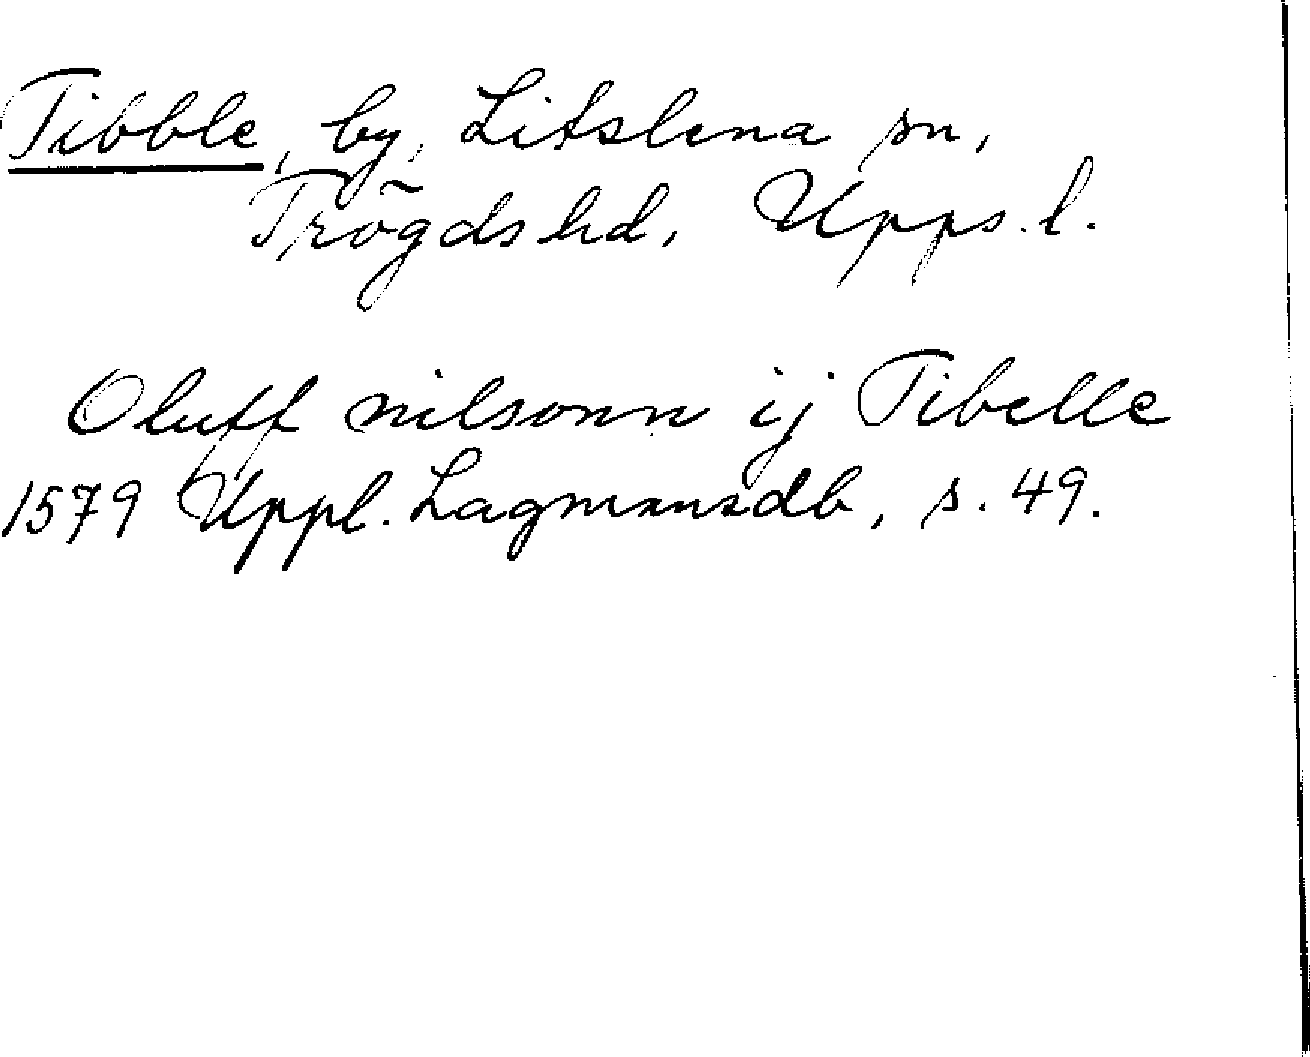 Tibble, by, Litslena sn,
Trögds hd, Upps. l.
Oluff nilsonn ij Tibelle
1579 Uppl. Lagmansdb, s. 49.